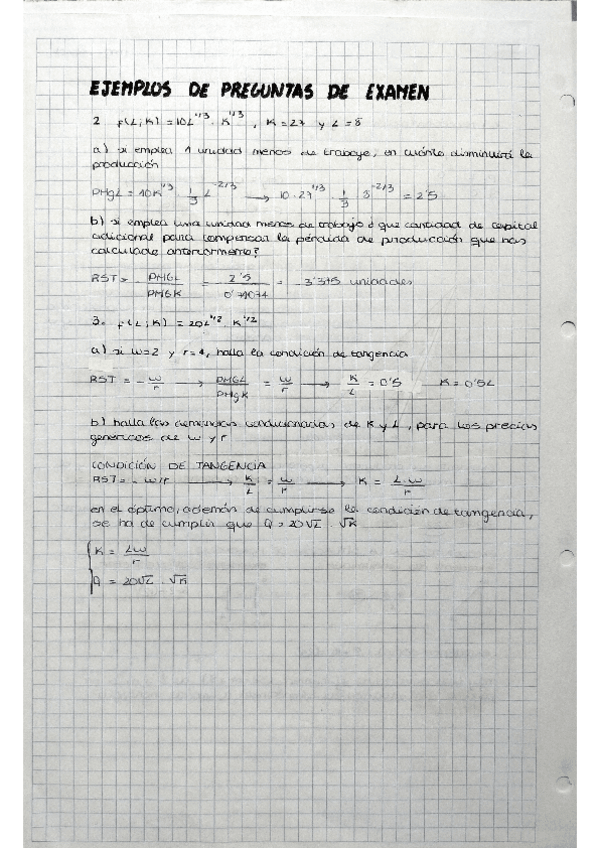 EJEMPLOS DE PREGUNTAS DE EXAMEN
2 f(L;K) = 10L^1/3 · K^1/3, K=27 y L=8
a) si emplea 1 unidad menos de trabajo, en cuánto disminuirá la
producción
PMgL = 10K^1/3 · 1/3 L^-2/3 → 10·27^1/3 · 1/3 8^-2/3 = 2'5
b) si emplea una unidad menos de trabajo ¿ que cantidad de capital
adicional para compensar la pérdida de producción que has
calculado anteriormente?
RST = PMGL/PMGK = 2'5/0'74074 = 3'375 unidades
3. f(L;K) = 20L^1/2 · K^1/2
a) si w=2 y r=4, halla la condición de tangencia
RST = - w/r → PMGL/PMgK = w/r → K/L = 0'5 K = 0'5L
b) halla las demandas condicionadas de K y L, para los precios
genéricos de w y r
CONDICIÓN DE TANGENCIA
RST = - w/r → K/L = w/r → K = L·w/r
en el óptimo, además de cumplirse la condición de tangencia,
se ha de cumplir que Q = 20√L · √K
K = Lw/r
Q = 20√L · √K